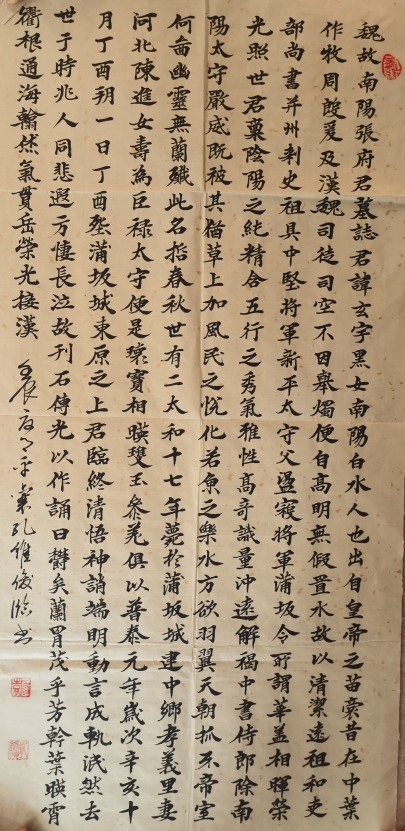 魏故南陽張府君墓誌君諱玄字黑女南陽白水人也出自皇帝之苗裔昔在中葉
作牧周殷爰及漢魏司徒司空不因舉燭便自高明無假置水故以清潔遠祖和吏
部尚書并州刾史祖具中堅將軍新平太守父盪寇將軍蒲坂令所謂華盖相暉榮
光照世君稟陰陽之純精含五行之秀氣雅性高奇識量沖遠解褐中書侍郎除南
陽太守嚴威既被其猶草上加風民之悅化若魚之樂水方欲羽翼天朝抓牙帝室
何啚幽靈無蘭殲此名哲春秋世有二太和十七年薨於蒲坂城建中鄉孝義里妻
河北陳進女壽為巨禄太守便是瓌寶相暎雙玉參差俱以普泰元年歲次辛亥十
月丁酉朔一日丁酉蒲坂城東原之上君臨終清悟神誚端明動言成軌泯然去
世于時兆人同悲遐方悽長泣故刊石傳光以作誦曰鬱矣蘭胃茂乎芳幹葉暎霄
衢根通海翰休氣貫岳榮光接漢 孔維俊臨書